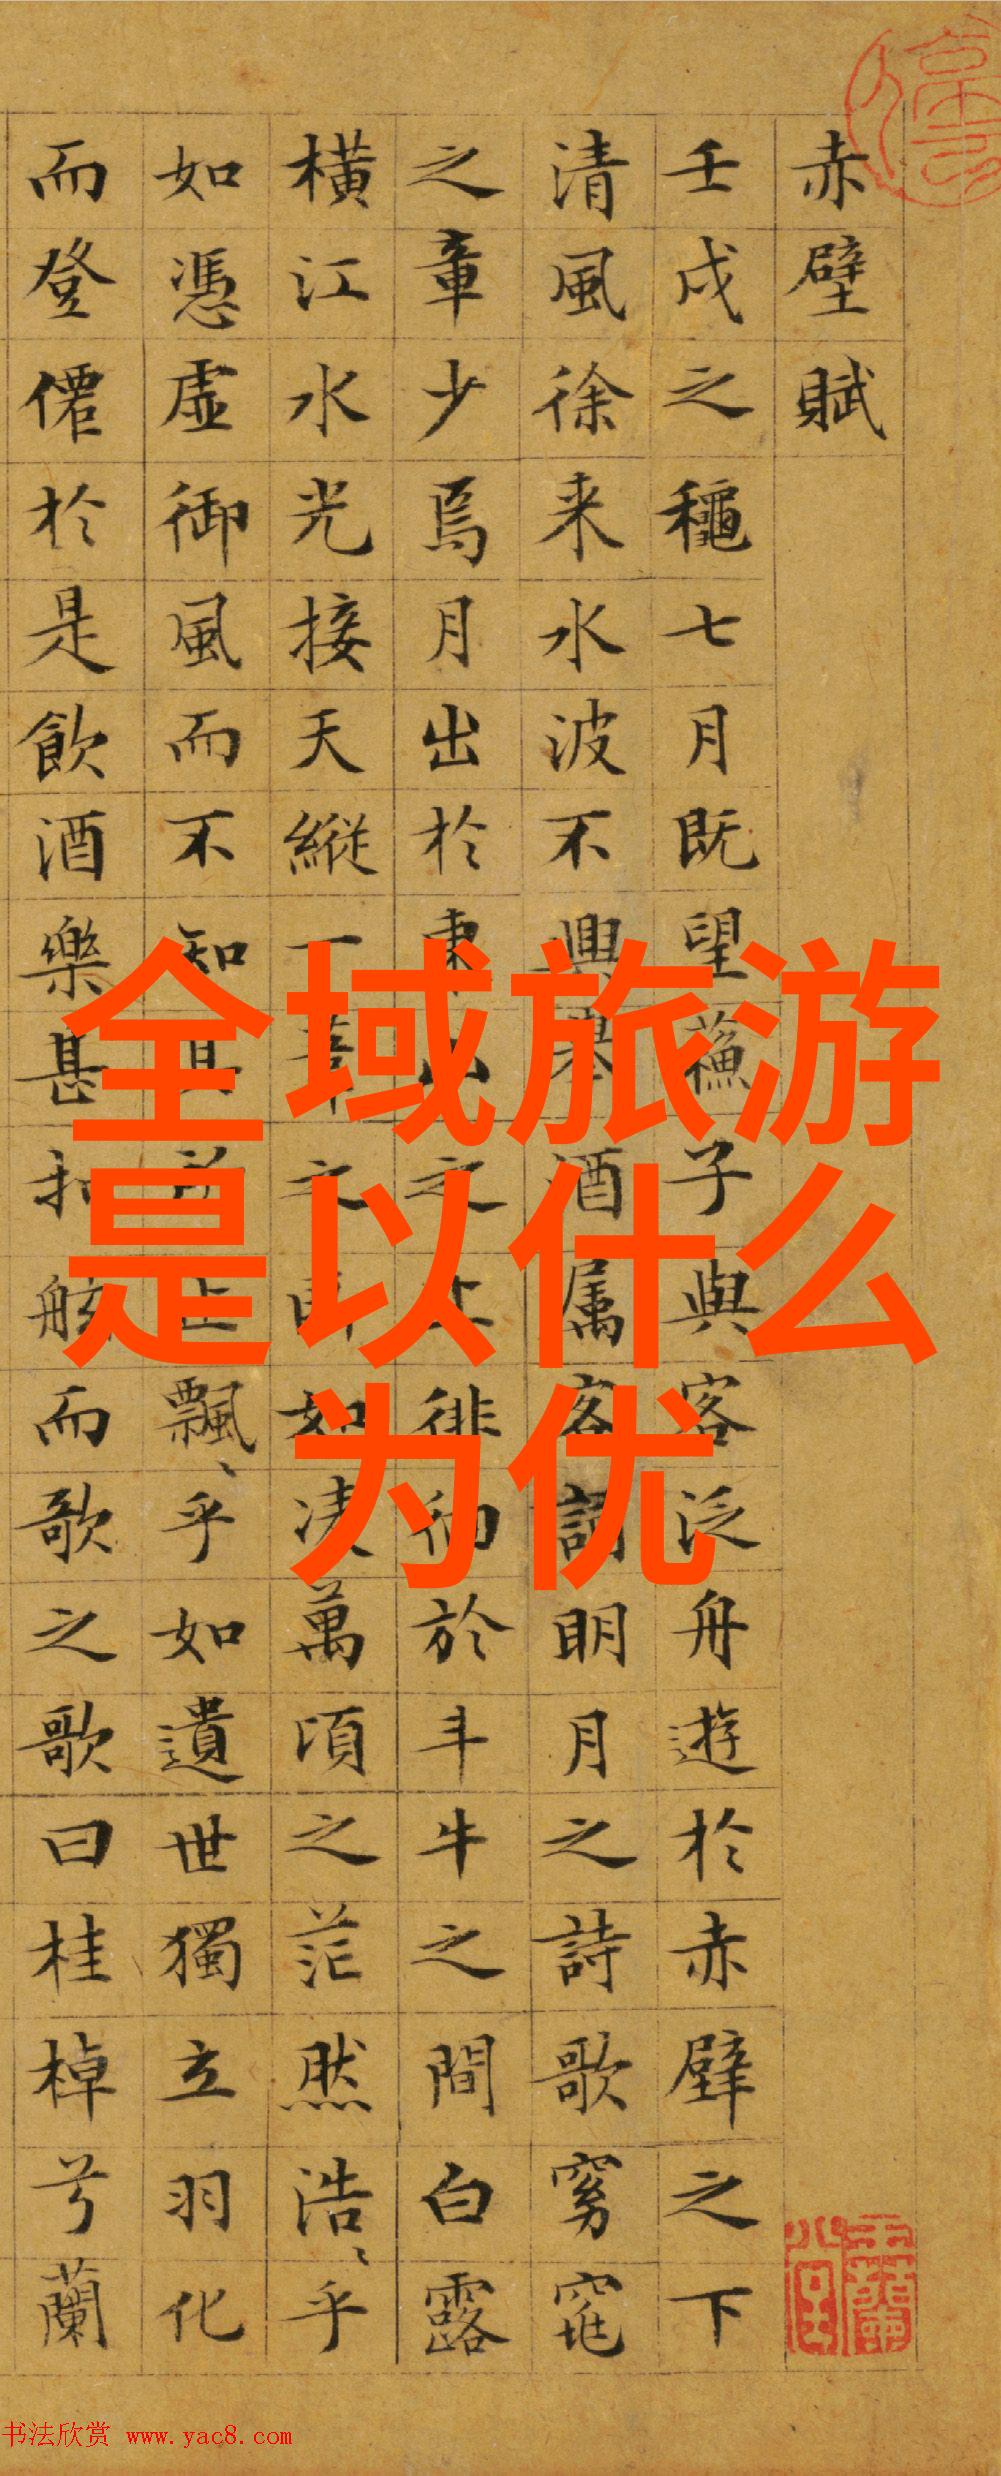 赤壁賦
壬戌之穐七月既望蘓子與客泛舟遊於赤壁之下
清風徐来水波不興舉酒属客誦明月之詩歌窈窕
之章少焉月出於東山之上徘徊於斗牛之間白露
橫江水光接天縱一葦之所如凌萬頃之茫然浩〻乎
如憑虛御風而不知其所止飄〻乎如遺世獨立羽化
而登僊於是飲酒樂甚扣舷而歌之歌曰桂棹兮蘭
全域旅游
是以什么
为优
书法欣赏 www.yac8.com